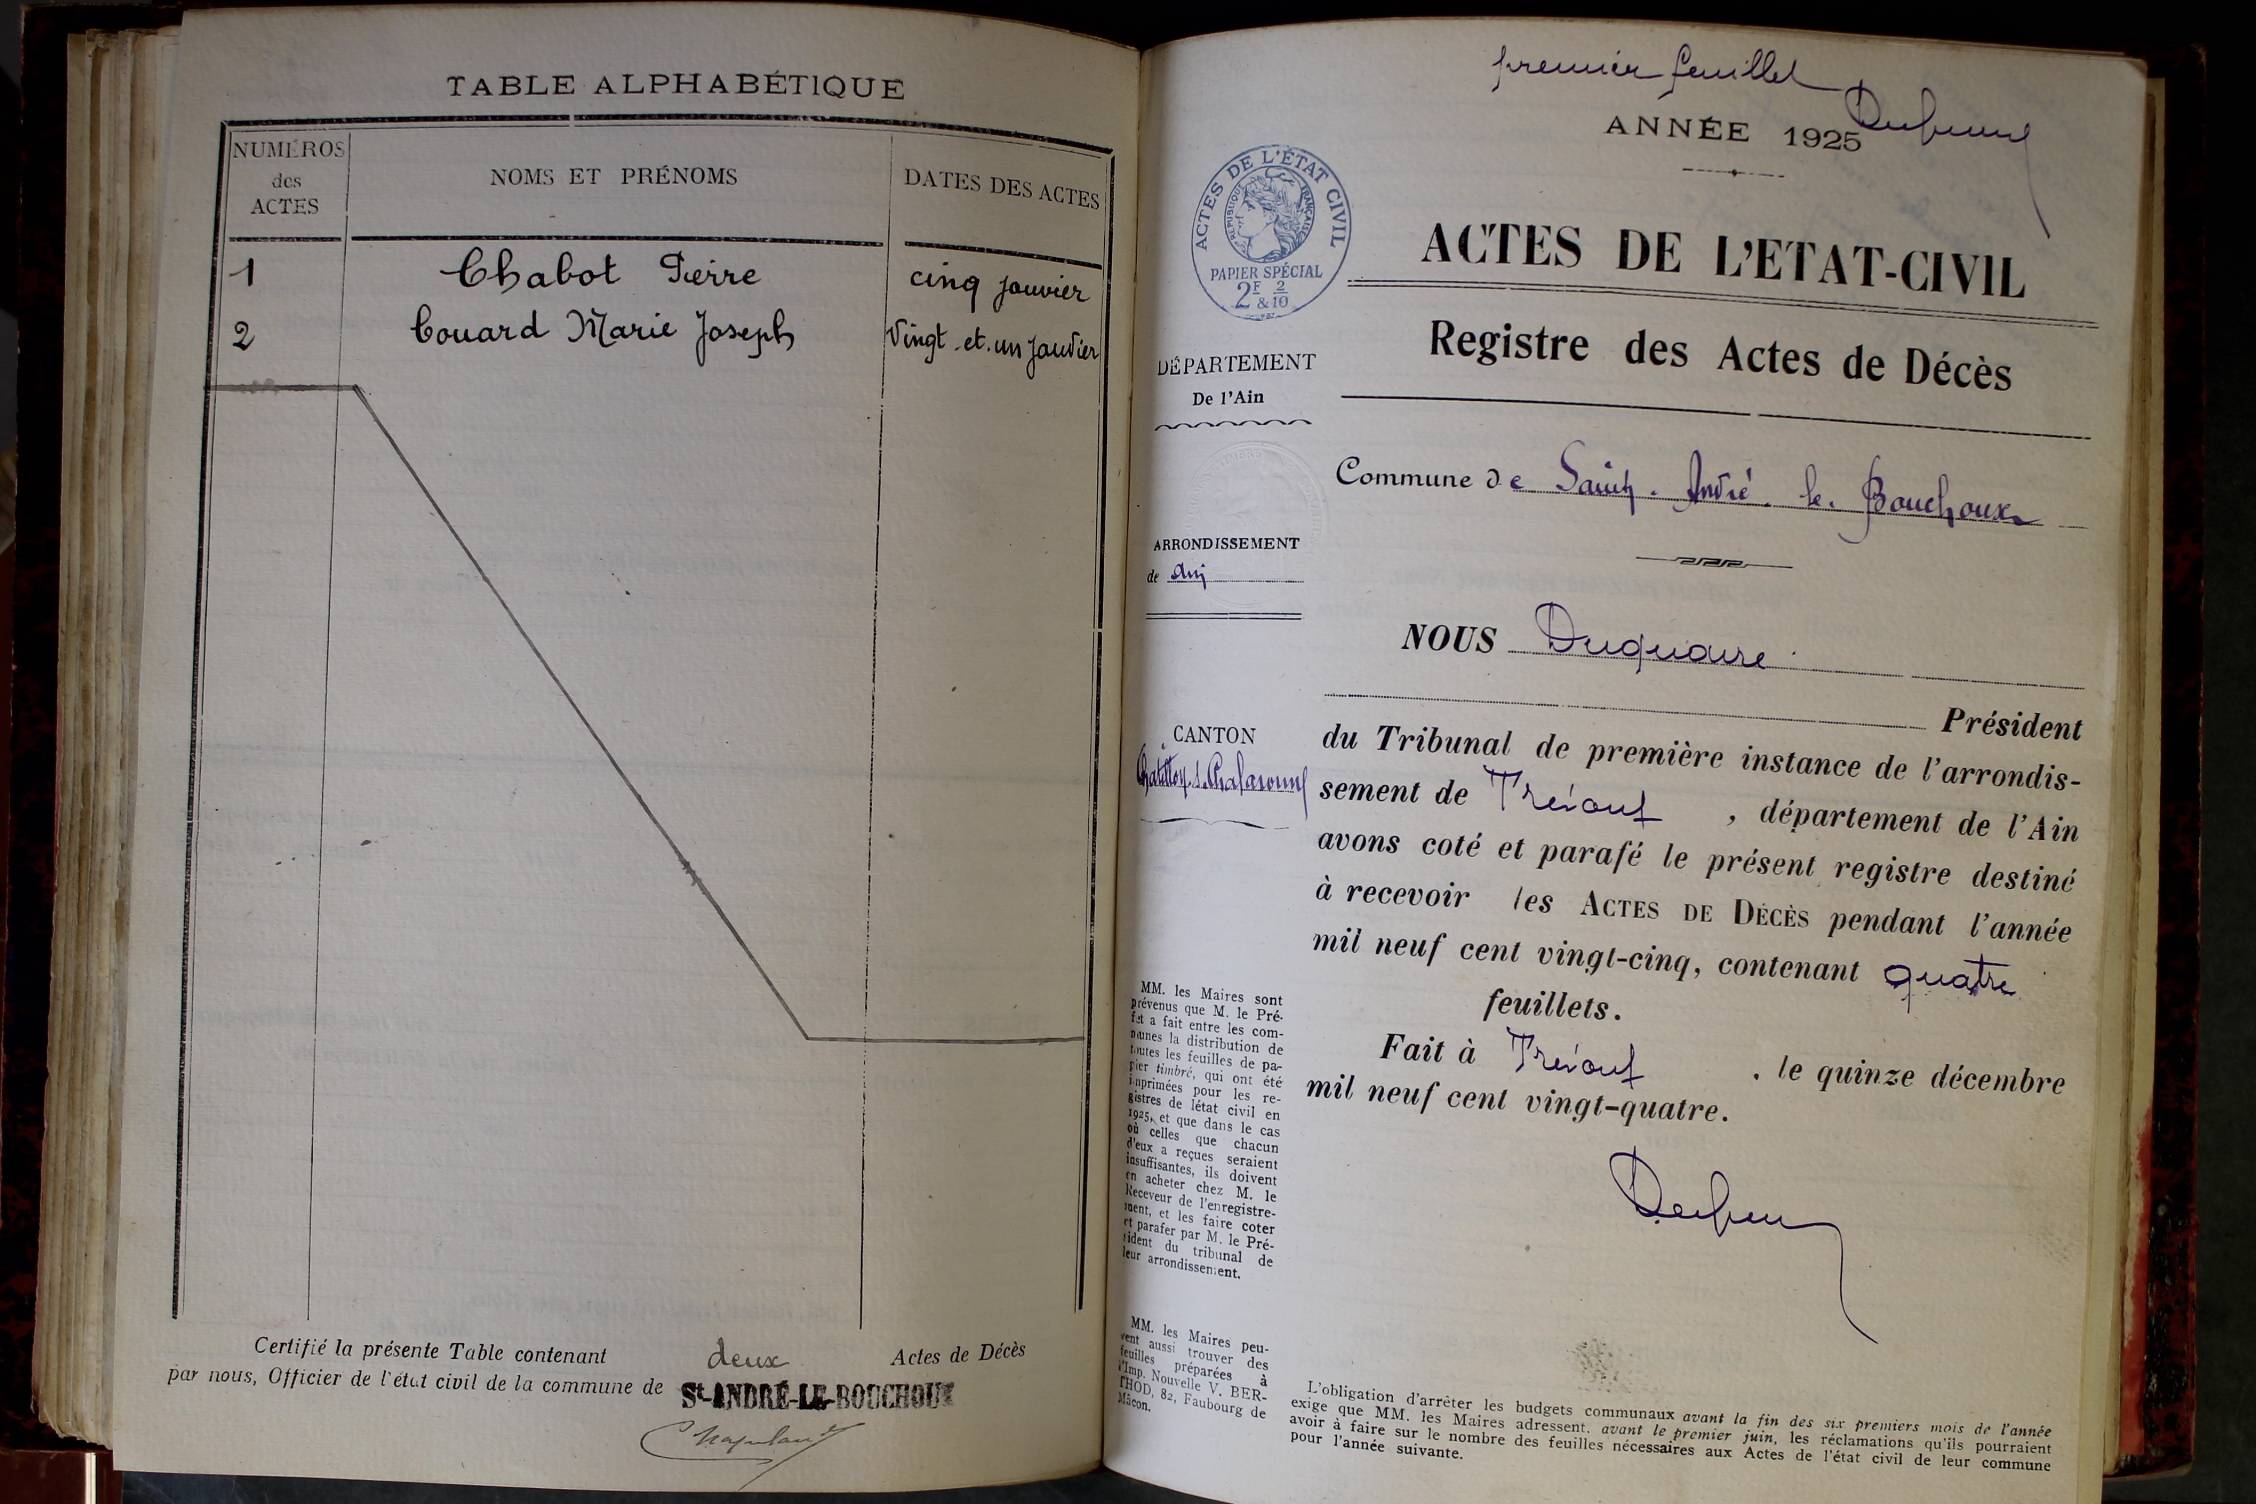 TABLE ALPHABÉTIQUE
NUMÉROS
des
ACTES
NOMS ET PRÉNOMS
DATES DES ACTES
1 Chabot Pierre cinq janvier
2 Couard Marie Joseph Vingt-et-un janvier
Certifié la présente Table contenant deux Actes de Décès
par nous, Officier de l'état civil de la commune de St-ANDRÉ-LE-BOUCHOUX
premier feuillet
ANNÉE 1925
ACTES DE L'ÉTAT CIVIL
RÉPUBLIQUE FRANÇAISE
PAPIER SPÉCIAL
2F & 2/10
ACTES DE L'ETAT-CIVIL
Registre des Actes de Décès
DÉPARTEMENT
De l'Ain
Commune de Saint-André-le-Bouchoux
ARRONDISSEMENT
de
NOUS Duquaire
Président
CANTON
Châtillon s. Chalaronne
du Tribunal de première instance de l'arrondis-
sement de Trévoux, département de l'Ain
avons coté et parafé le présent registre destiné
à recevoir les ACTES DE DÉCÈS pendant l'année
mil neuf cent vingt-cinq, contenant quatre
feuillets.
Fait à Trévoux, le quinze décembre
mil neuf cent vingt-quatre.
MM. les Maires sont
prévenus que M. le Pré-
fet a fait entre les com-
munes la distribution de
toutes les feuilles de pa-
pier timbré, qui ont été
imprimées pour les re-
gistres de l'état civil en
1925, et que dans le cas
où celles que chacun
d'eux a reçues seraient
insuffisantes, ils doivent
en acheter chez M. le
Receveur de l'enregistre-
ment, et les faire coter
et parafer par M. le Pré-
sident du tribunal de
leur arrondissement.
MM. les Maires peu-
vent aussi trouver des
feuilles préparées à
l'Imp. Nouvelle V. BER-
THOD, 82, Faubourg de
Mâcon.
L'obligation d'arrêter les budgets communaux avant la fin des six premiers mois de l'année
exige que MM. les Maires adressent, avant le premier juin, les réclamations qu'ils pourraient
avoir à faire sur le nombre des feuilles nécessaires aux Actes de l'état civil de leur commune
pour l'année suivante.